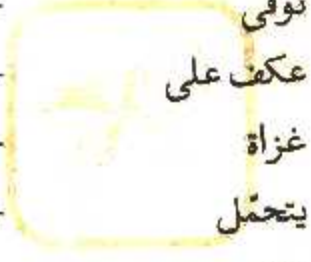 توفي
عكف على
غزاة
يتحمّل